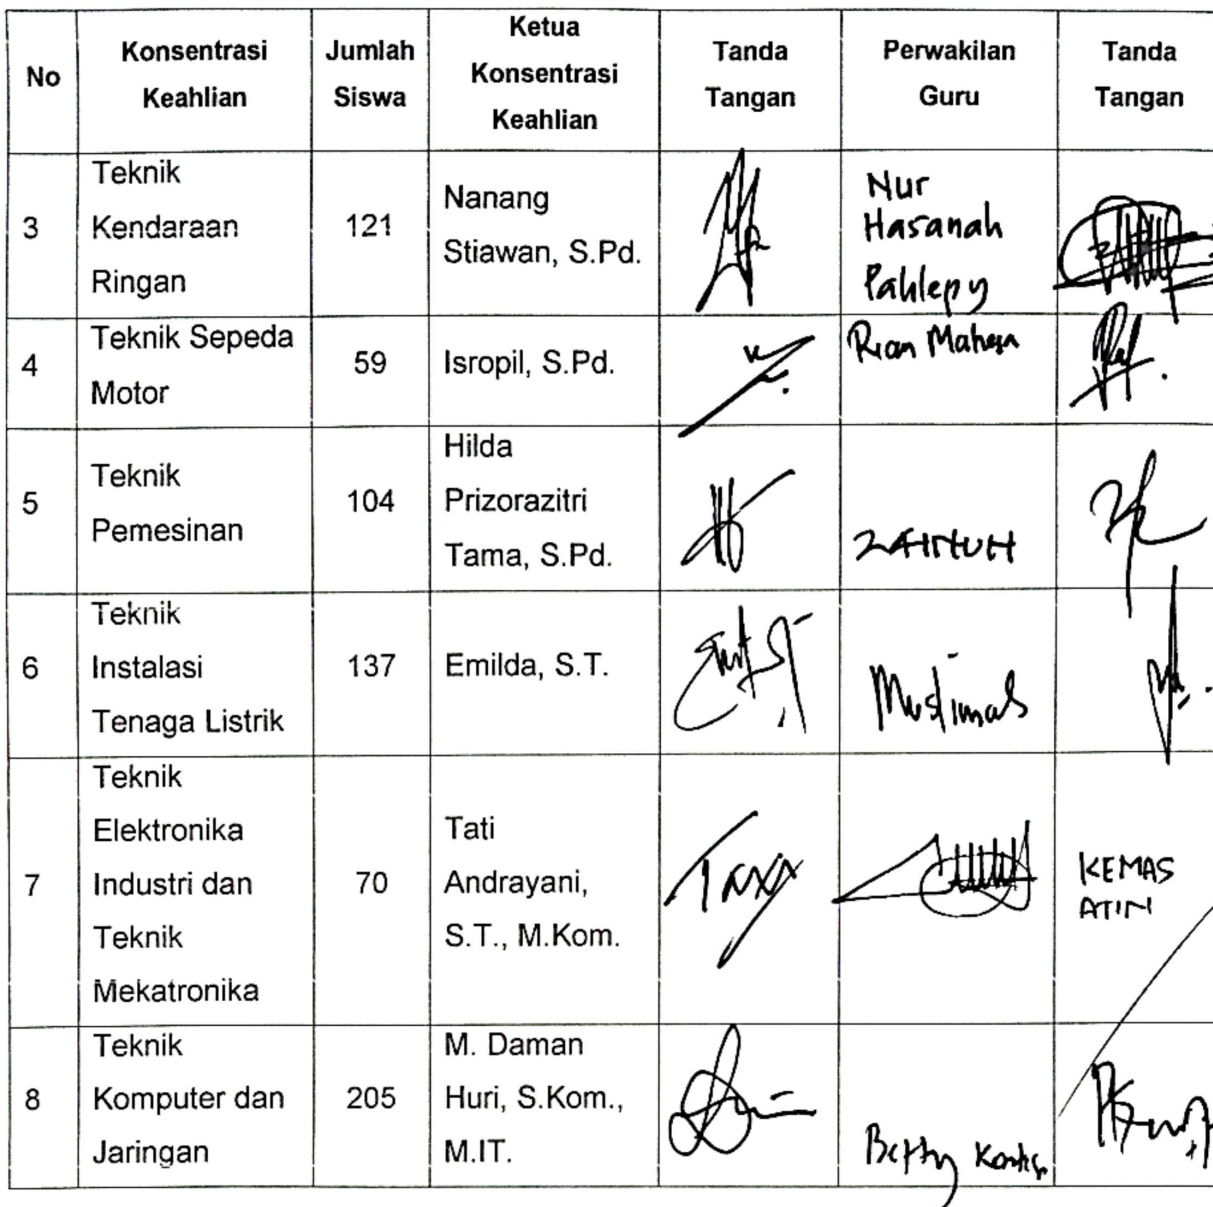 No
Konsentrasi
Keahlian
Jumlah
Siswa
Ketua
Konsentrasi
Keahlian
Tanda
Tangan
Perwakilan
Guru
Tanda
Tangan
3
Teknik
Kendaraan
Ringan
121
Nanang
Stiawan, S.Pd.
Nur
Hasanah
Pahlepy
4
Teknik Sepeda
Motor
59
Isropil, S.Pd.
Rian
5
Teknik
Pemesinan
104
Hilda
Prizorazitri
Tama, S.Pd.
6
Teknik
Instalasi
Tenaga Listrik
137
Emilda, S.T.
7
Teknik
Elektronika
Industri dan
Teknik
Mekatronika
70
Tati
Andrayani,
S.T., M.Kom.
KEMAS
ATIN
8
Teknik
Komputer dan
Jaringan
205
M. Daman
Huri, S.Kom.,
M.IT.
Betty